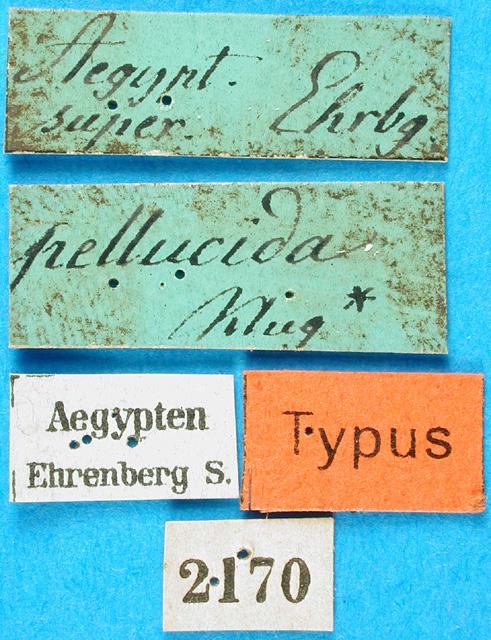 Aegypt.
super. Ehrbg.
pellucida
Klug *
Aegypten
Ehrenberg S.
Typus
2170